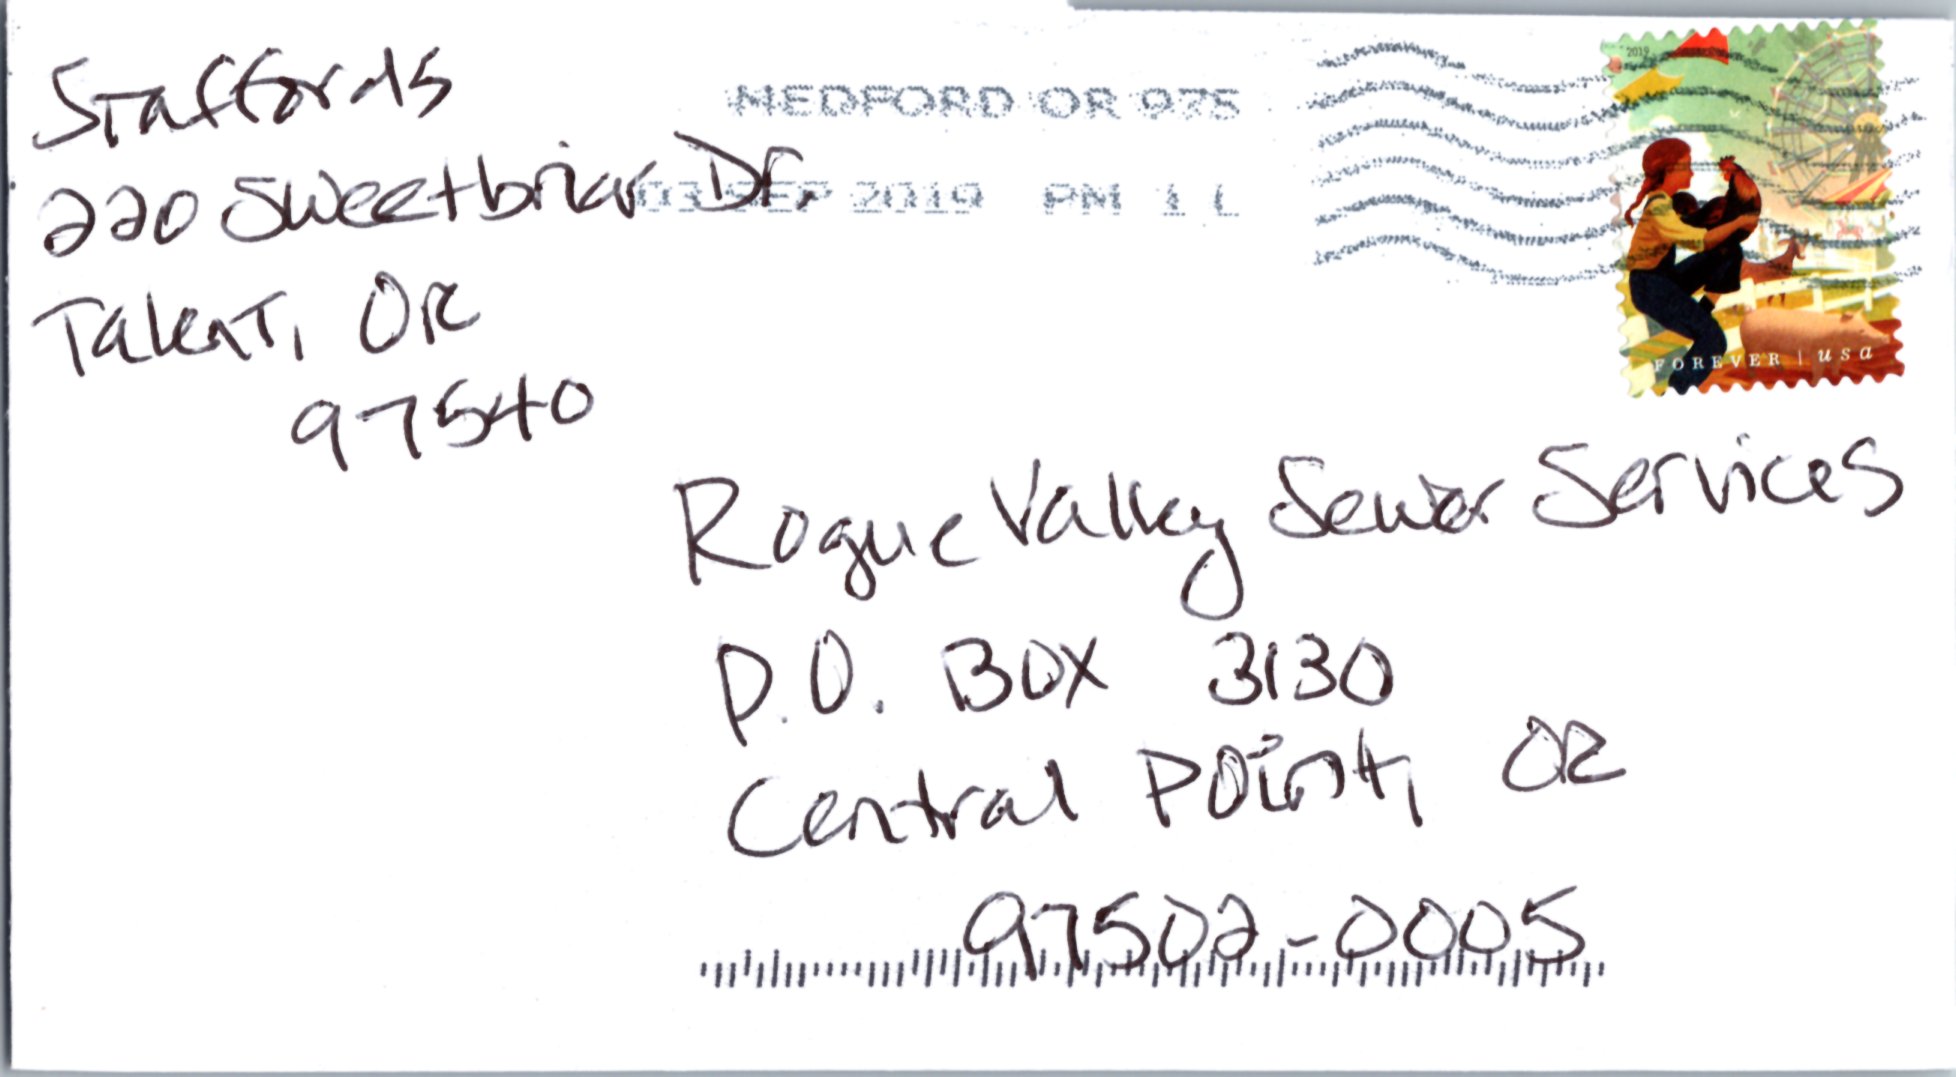 Staffords
220 Sweetbriar Dr.
Talent, OR
97540
MEDFORD OR 975
03 SEP 2019 PM 1 L
2019
FOREVER | usa
Rogue Valley Sewer Services
P.O. Box 3130
Central Point, OR
97502-0005